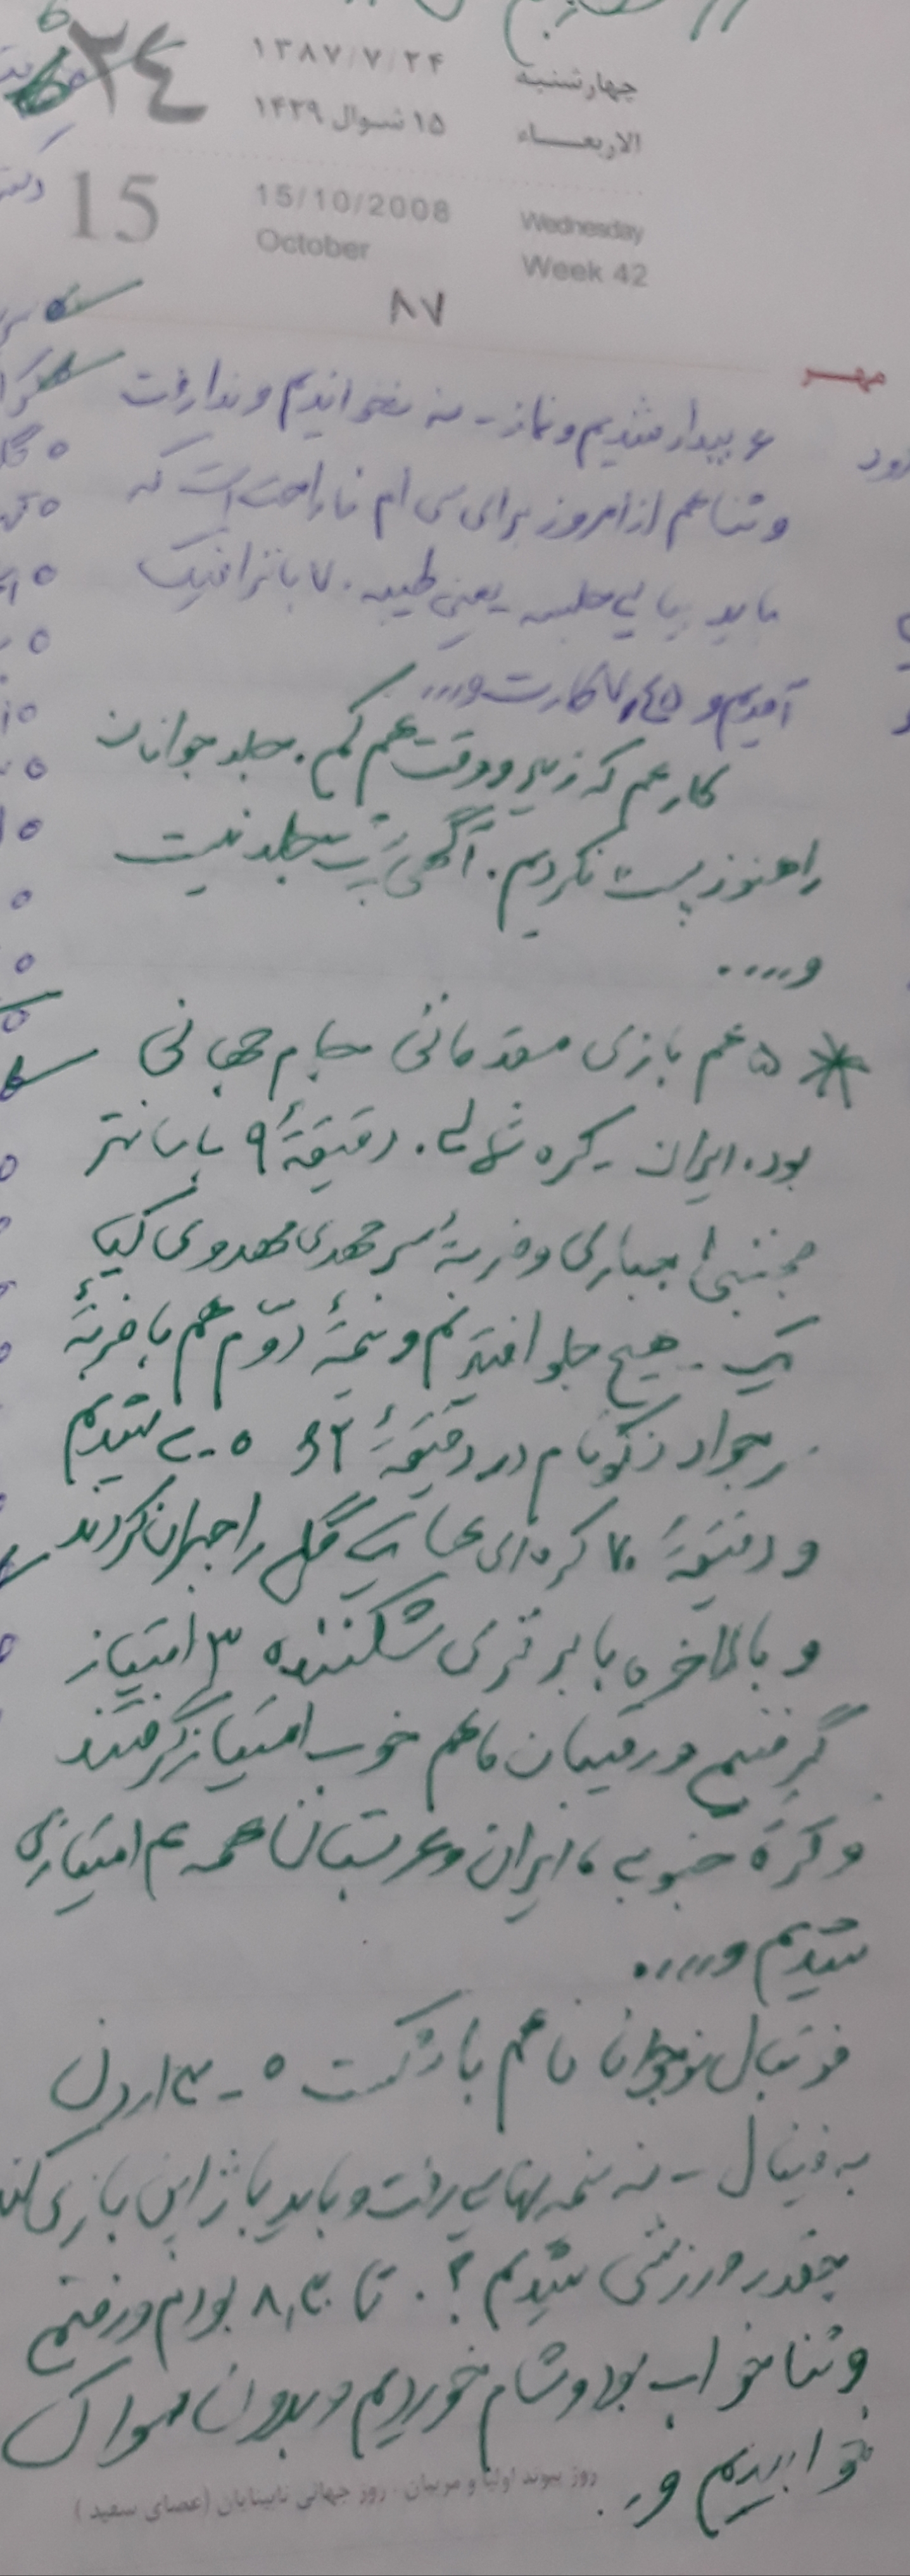 ۲۴
چهارشنبه ۱۳۸۷/۷/۲۴
الاربعـــاء ۱۵ شـوال ۱۴۲۹
15
Wednesday 15/10/2008
Week 42 October
۸۷
مهـر
۶ بیدار شدیم و نماز - نه نخواندیم و ندا رفت
و ثنا هم از امروز برای سی ام ناراحت است که
باید بیایی جلسه یعنی طیبه. ۷ با ترافیک
آمدیم و ۷,۴۵ کارت و...
کار هم که زیاد و وقت هم کم. جلد جوانان
را هنوز پست نکردیم. آگهی پشت جلد نیست
و....
* ۵ هم بازی مقدماتی جام جهانی
بود. ایران - کره شمالی. دقیقهٔ ۹ با سانتر
مجتبی جباری و ضربهٔ سر مهدی مهدوی کیا
یک - هیچ جلو افتادیم و نیمهٔ دوّم هم با ضربهٔ
جواد نکونام در دقیقهٔ ۶۲ ۲-۰ شدیم
و دقیقهٔ ۷۰ کره ای ها یک گل را جبران کردند
و بالاخره با برتری شکننده ۳ امتیاز
گرفتیم و رقیبان ما هم خوب امتیاز گرفتند
و کرهٔ جنوبی، ایران و عربستان همه ۴ امتیازی
شدیم و....
فوتبال نوجوانان ما هم با شکست ۰ - ۳ اردن
به فینال - نه نیمه نهایی رفت و باید با ژاپن بازی کند
چقدر ورزشی شدیم؟. تا ۸,۳۰ بودم و رفتم
و ثنا خواب بود و شام خوردیم و بدون مسواک
خوابیدیم و..
روز پیوند اولیا و مربیان - روز جهانی نابینایان (عصای سفید)